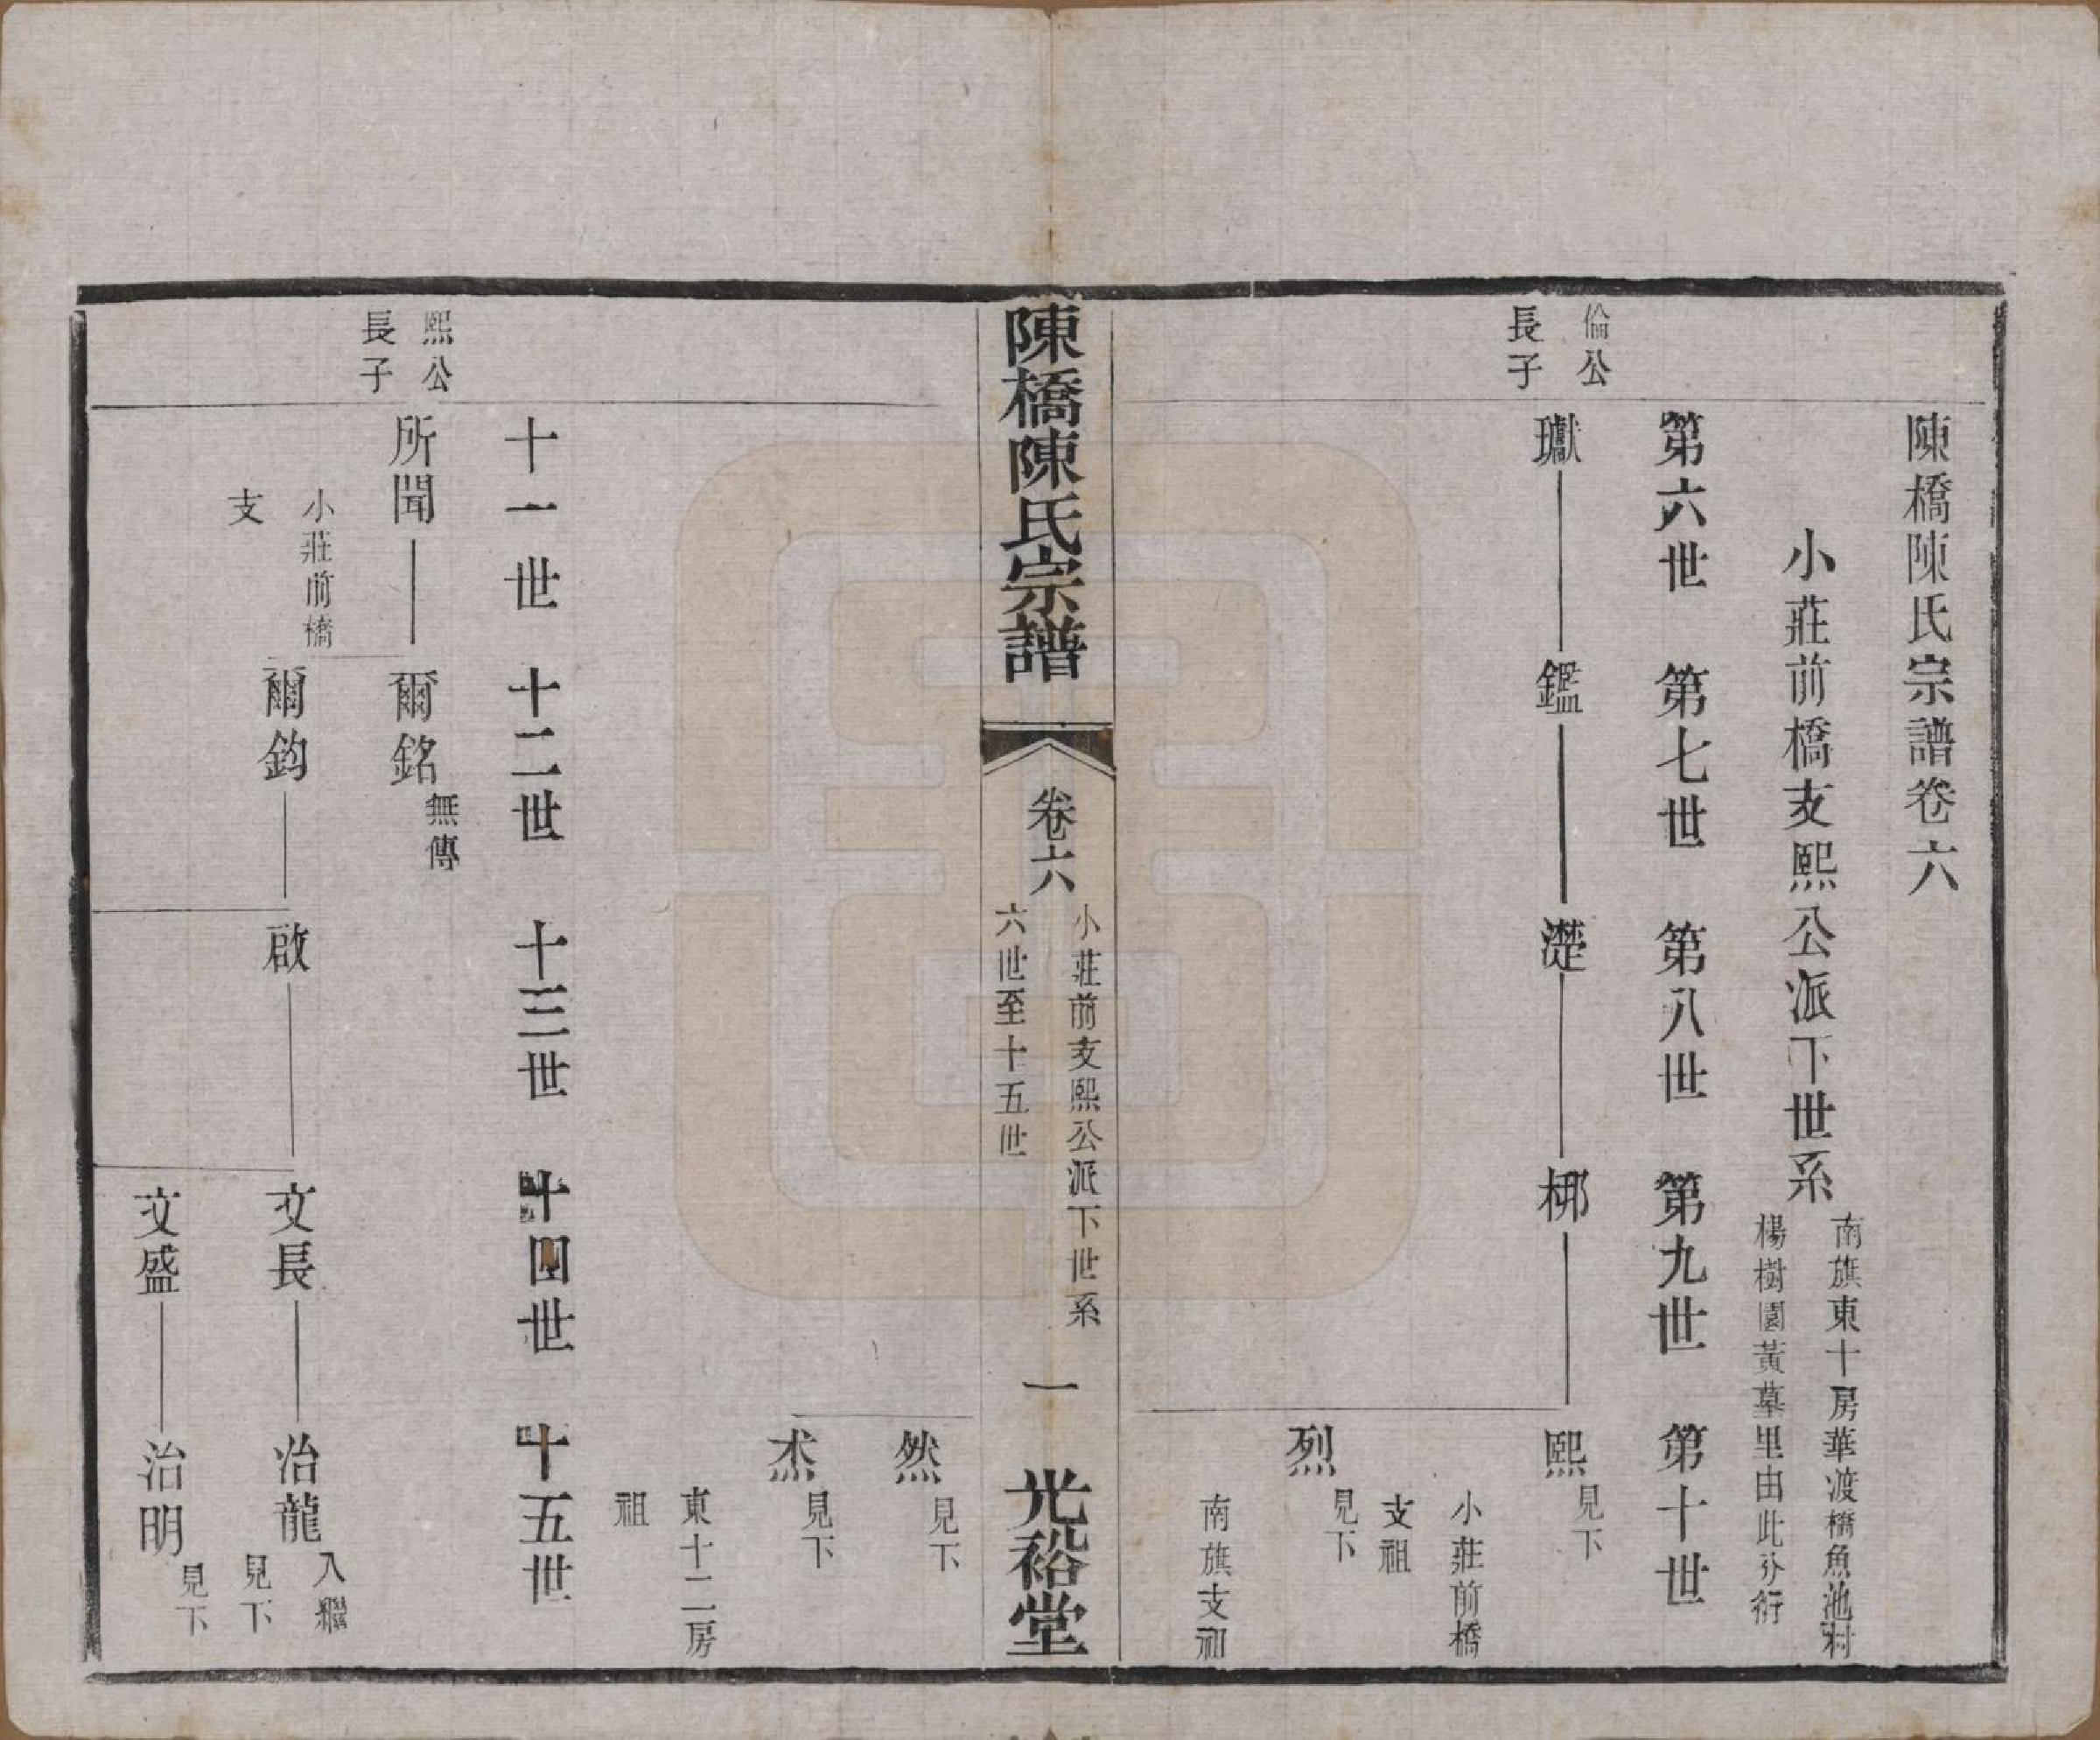 陳橋陳氏宗譜卷六
小莊前橋支熙公派下世系
南旗東十房華渡橋魚池村
楊樹園黃墓里由此分衍
第六世 第七世 第八世 第九世 第十世
倫公
長子
瓛 鑑 濋 梛 熙
見下
小莊前橋
支祖
烈
見下
南旗支祖
陳橋陳氏宗譜 卷六
小莊前支熙公派下世系
六世至十五世
一 光裕堂
然
見下
烝
見下
東十二房
祖
十一世 十二世 十三世 十四世 十五世
熙公
長子
所聞 爾銘
無傳
小莊前橋
支
爾鈞 啟 文長 治龍
入繼
見下
文盛 治明
見下